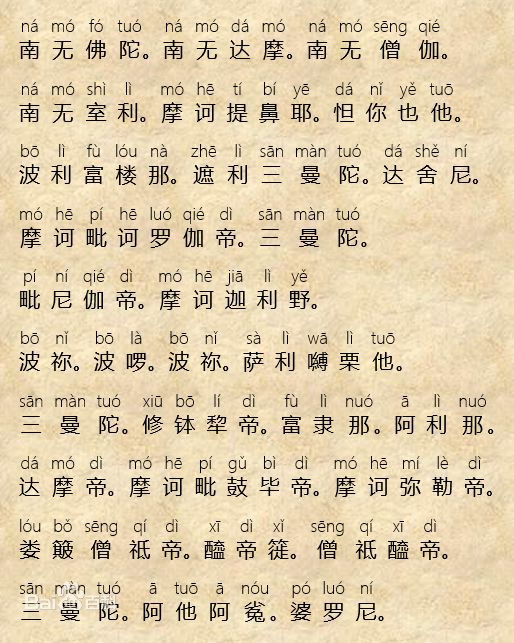 ná mó fó tuó ná mó dá mó ná mó sēng qié
南无佛陀。南无达摩。南无僧伽。
ná mó shì lì mó hē tí bí yē dá nǐ yě tuō
南无室利。摩诃提鼻耶。怛你也他。
bō lì fù lóu nà zhē lì sān màn tuó dá shě ní
波利富楼那。遮利三曼陀。达舍尼。
mó hē pí hē luó qié dì sān màn tuó
摩诃毗诃罗伽帝。三曼陀。
pí ní qié dì mó hē jiā lì yě
毗尼伽帝。摩诃迦利野。
bō nǐ bō là bō nǐ sà lì wā lì tuō
波祢。波啰。波祢。萨利嚩栗他。
sān màn tuó xiū bō lí dì fù lì nuó ā lì nuó
三曼陀。修钵犂帝。富隶那。阿利那。
dá mó dì mó hē pí gǔ bì dì mó hē mí lè dì
达摩帝。摩诃毗鼓毕帝。摩诃弥勒帝。
lóu bǒ sēng qí dì xī dì xǐ sēng qí xī dì
娄簸僧祇帝。醯帝簁。僧祇醯帝。
sān màn tuó ā tuō ā nóu pó luó ní
三曼陀。阿他阿㝹。婆罗尼。
Bai百科